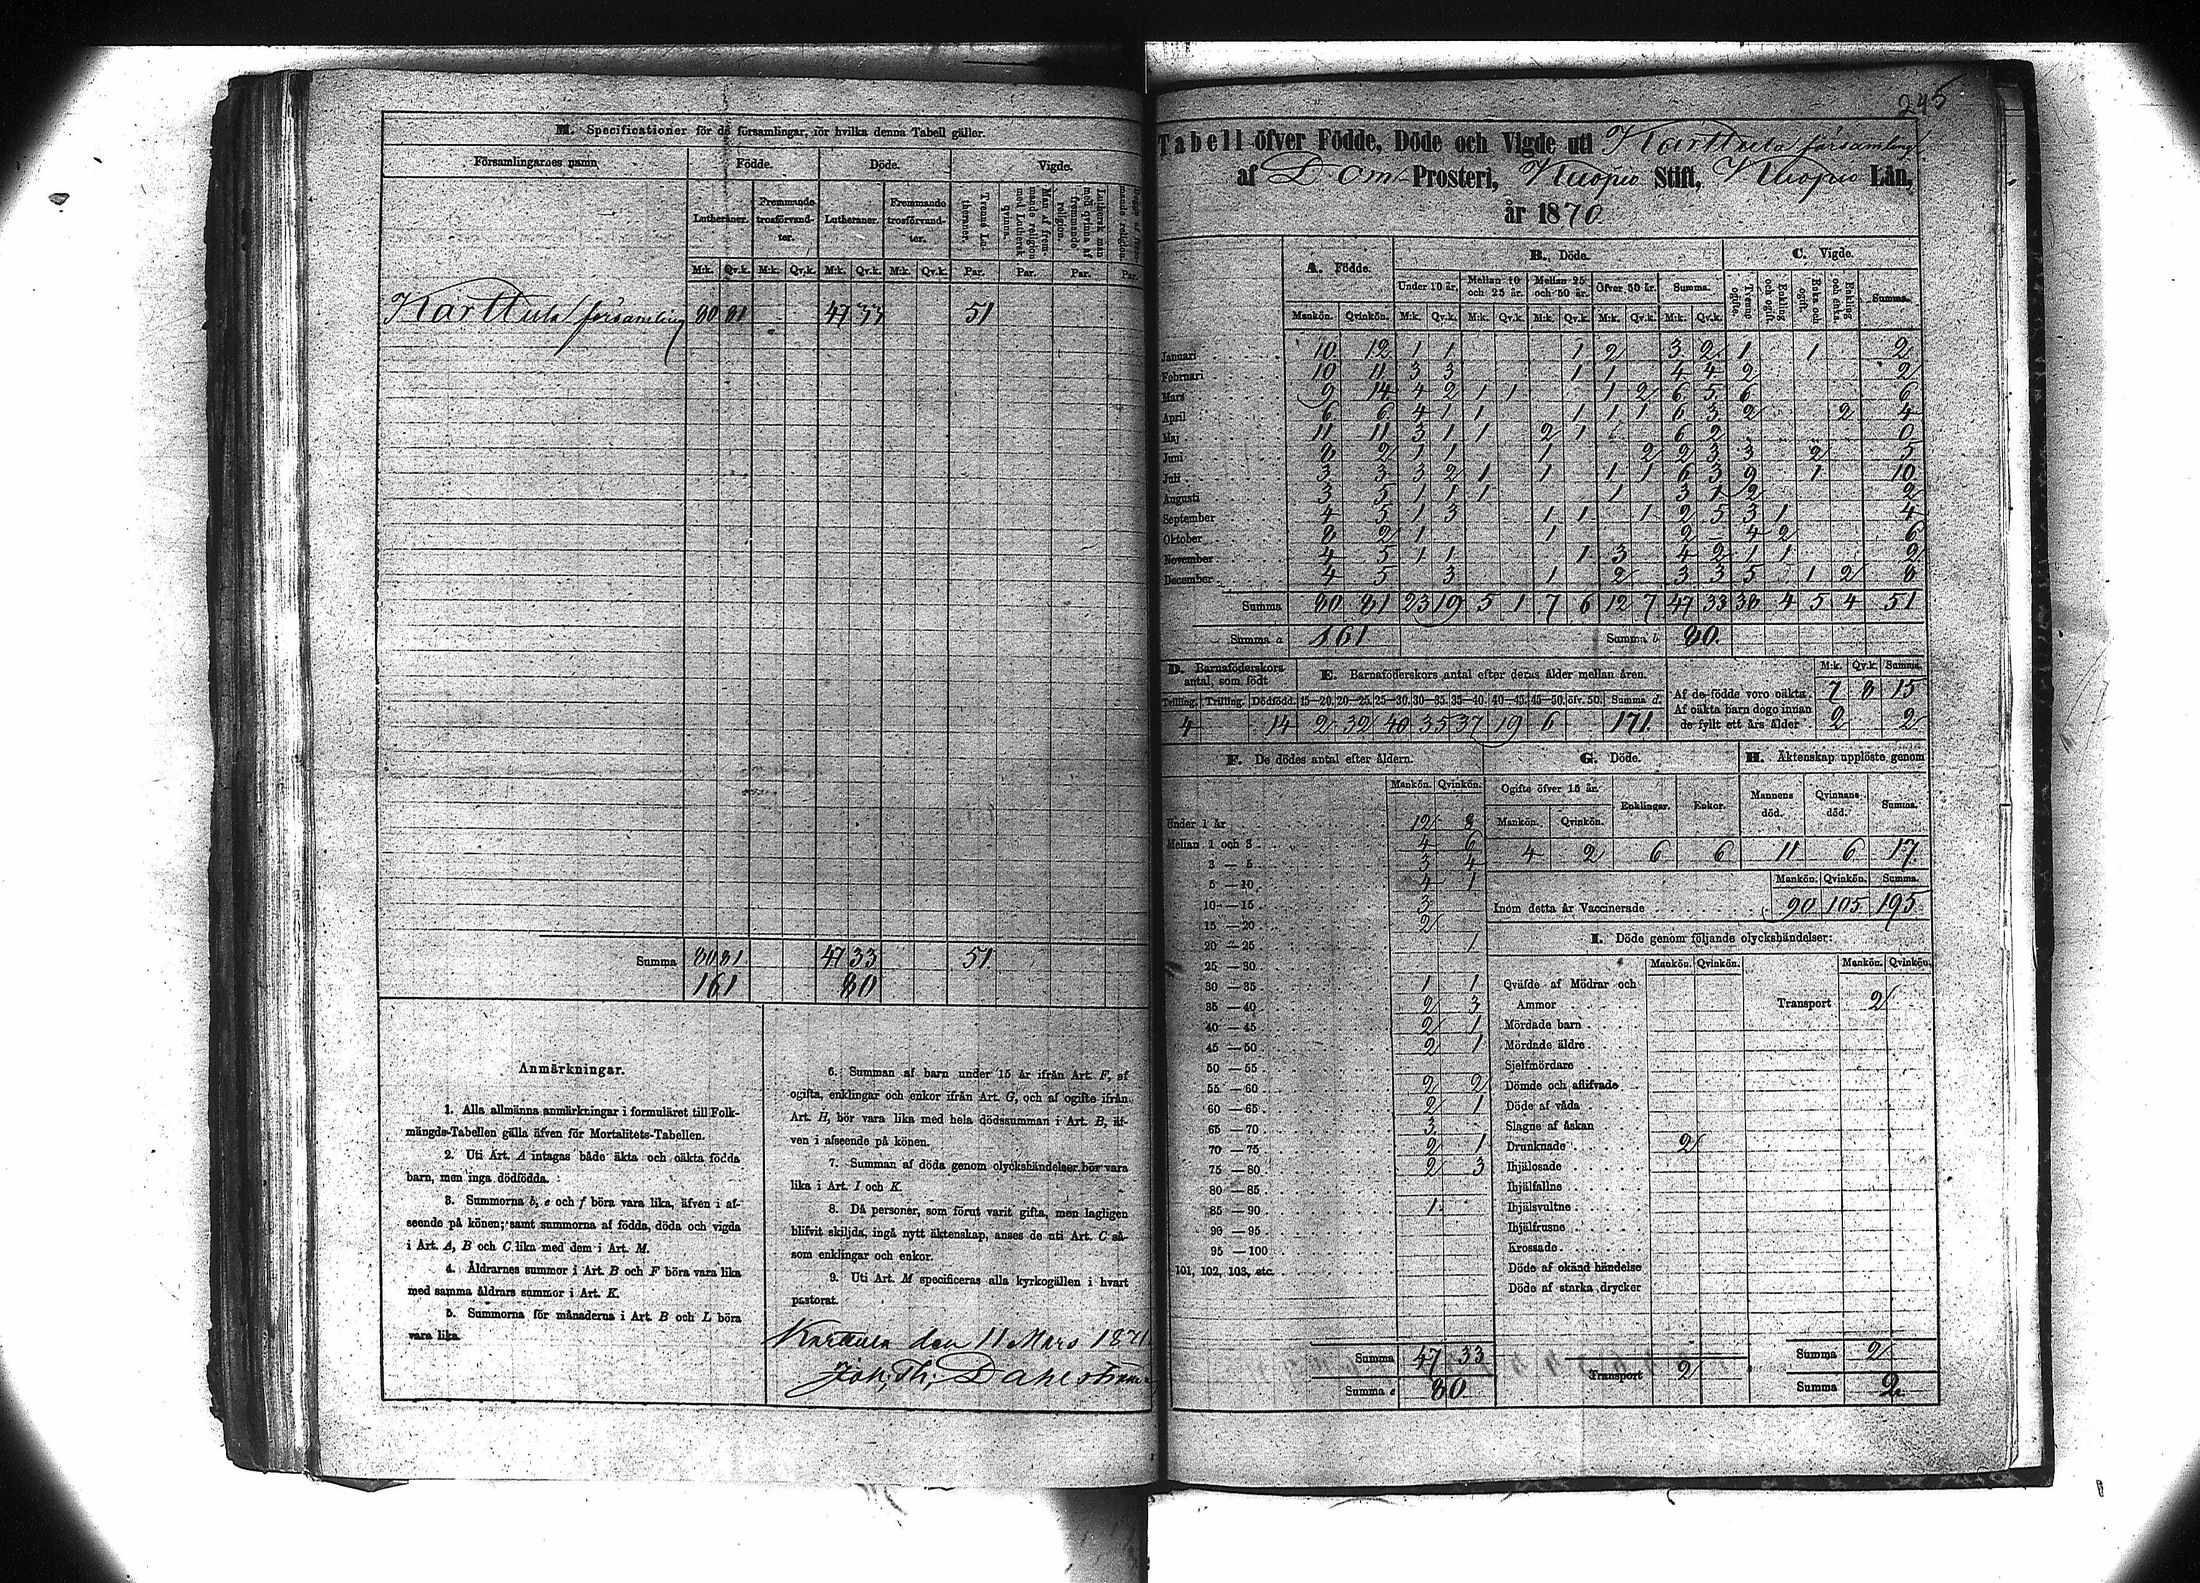 M. Specificationer för de församlingar, för hvilka denna Tabell gäller.
Församlingarnes namn Födde. Döde. Vigde.
Lutheraner. Fremmande trosförvandter. Lutheraner. Fremmande trosförvandter. Trenne Lutheraner. Man af fremmande religion med Luthersk qvinna. Luthersk man med qvinna af fremmande religion.
M:k. Qv.k. M:k. Qv.k. M:k. Qv.k. M:k. Qv.k. Par. Par. Par. Par.
Karttula församling 80 81 47 33 51
Summa 80 81 47 33 51
161 80
Anmärkningar.
1. Alla allmänna anmärkningar i formuläret till Folk-
mängds-Tabellen gälla äfven för Mortalitets-Tabellen.
2. Uti Art. A intagas både äkta och oäkta födda
barn, men inga dödfödda.
3. Summorna b, e och f böra vara lika, äfven i af-
seende på könen; samt summorna af födda, döda och vigda
i Art. A, B och C lika med dem i Art. M.
4. Åldrarnes summor i Art. B och F böra vara lika
med samma åldrars summor i Art. K.
5. Summorna för månaderna i Art. B och L böra
vara lika.
6. Summan af barn under 15 år ifrån Art. F, af
ogifta, enklingar och enkor ifrån Art. G, och af ogifte ifrån
Art. H, bör vara lika med hela dödssumman i Art. B, äf-
ven i afseende på könen.
7. Summan af döda genom olyckshändelser bör vara
lika i Art. I och K.
8. Då personer, som förut varit gifta, men lagligen
blifvit skiljda, ingå nytt äktenskap, anses de uti Art. C så-
som enklingar och enkor.
9. Uti Art. M specificeras alla kyrkogällen i hvart
pastorat.
Karttula den 11 Mars 1871
Joh. Th. Dahlström
245
Tabell öfver Födde, Döde och Vigde uti Karttula församling
af Dom-Prosteri, Kuopio Stift, Kuopio Län,
år 1870
A. Födde. B. Döde. C. Vigde.
Under 10 år. Mellan 10 och 25 år. Mellan 25 och 50 år. Öfver 50 år. Summa. Tvenne ogifte. Enkling och ogift. Enka och ogift. Enkling och enka. Summa.
Mankön. Qvinkön. M:k. Qv.k. M:k. Qv.k. M:k. Qv.k. M:k. Qv.k. M:k. Qv.k.
Januari 10 12 1 1 1 2 3 2 1 1 2
Februari 10 11 3 3 1 1 4 4 2 2
Mars 9 14 4 2 1 1 1 2 6 5 6 6
April 6 6 4 1 1 1 1 1 6 3 2 2 4
Maj 11 11 3 1 1 2 1 6 2 0
Juni 8 2 1 1 1 2 2 3 3 2 5
Juli 3 3 3 2 1 1 1 1 6 3 9 1 10
Augusti 3 5 1 1 1 1 3 1 2 2
September 4 5 1 3 1 1 1 2 5 3 1 4
Oktober 8 2 1 1 2 4 2 6
November 4 5 1 1 1 3 4 2 1 1 2
December 4 5 3 1 2 3 3 5 1 2 8
Summa 80 81 23 19 5 1 7 6 12 7 47 33 38 4 5 4 51
Summa a 161 Summa b 80.
D. Barnaföderskors antal, som födt
E. Barnaföderskors antal efter deras ålder mellan åren.
M:k. Qv.k. Summa.
Tvilling. Trilling. Dödfödd. 15–20. 20–25. 25–30. 30–35. 35–40. 40–45. 45–50. öfv. 50. Summa d.
4 14 2 32 40 35 37 19 6 171.
Af de födde voro oäkta 7 8 15
Af oäkta barn dogo innan
de fyllt ett års ålder 2 2
F. De dödes antal efter åldern.
Mankön. Qvinkön.
Under 1 år 12 8
Mellan 1 och 3 4 6
3 — 5 3 4
5 — 10 4 1
10 — 15 3
15 — 20 2
20 — 25 1
25 — 30
30 — 35 1 1
35 — 40 2 3
40 — 45 2 1
45 — 50 2 1
50 — 55
55 — 60 2 2
60 — 65 2 1
65 — 70 3
70 — 75 2 1
75 — 80 2 3
80 — 85
85 — 90 1
90 — 95
95 — 100
101, 102, 103, etc.
Summa 47 33
Summa e 80
G. Döde. H. Äktenskap upplöste genom
Ogifte öfver 15 år. Enklingar. Enkor. Mannens död. Qvinnans död. Summa.
Mankön. Qvinkön.
4 2 6 6 11 6 17.
Mankön. Qvinkön. Summa.
Inom detta år Vaccinerade 90 105 195
I. Döde genom följande olyckshändelser:
Mankön. Qvinkön. Mankön. Qvinkön.
Qväfde af Mödrar och
Ammor Transport 2
Mördade barn
Mördade äldre
Sjelfmördare
Dömde och aflifvade
Döde af våda
Slagne af åskan
Drunknade 2
Ihjälosade
Ihjälfallne
Ihjälsvultne
Ihjälfrusne
Krossade
Döde af okänd händelse
Döde af starka drycker
Summa 2
Transport 2
Summa 2.